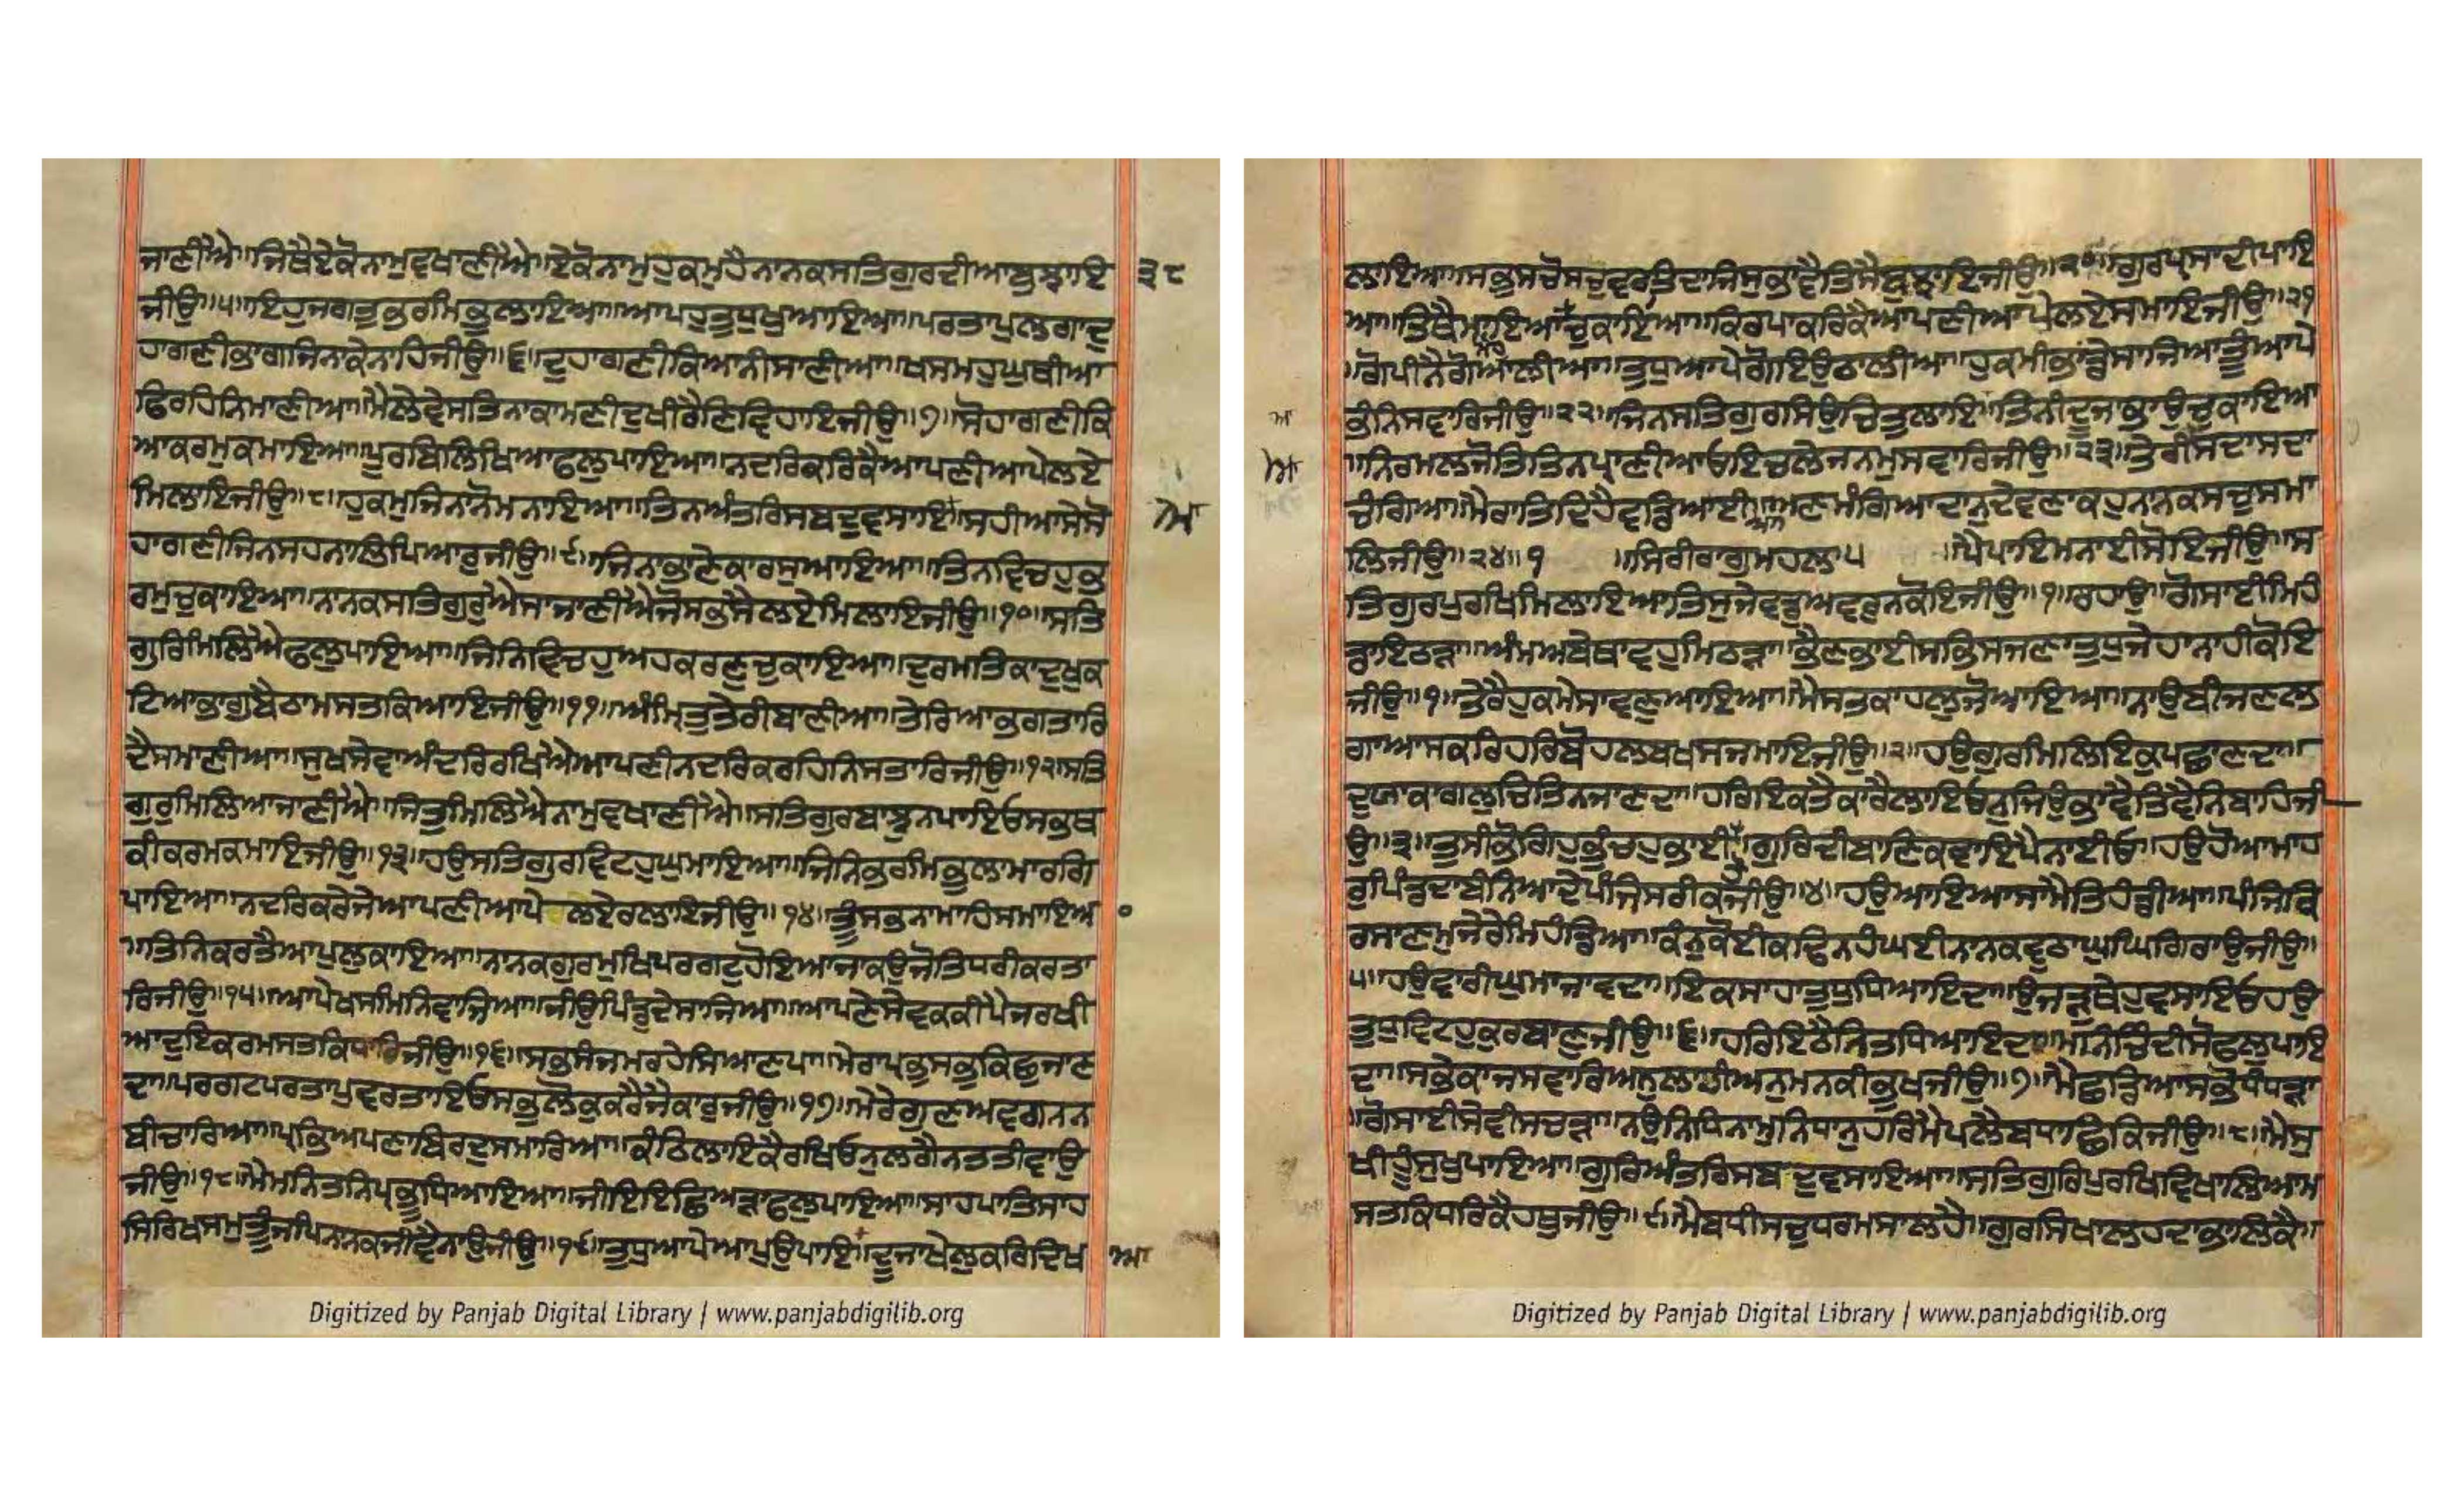 ਜਾਣੀਐ॥ਜਿਥੈਏਕੋਨਾਮੁਵਖਾਣੀਐ॥ਏਕੋਨਾਮੁਹੁਕਮੁਹੈਨਾਨਕਸਤਿਗੁਰਦੀਆਬੁਝਾਇ ੩੮
ਜੀਉ॥੫॥ਇਹੁਜਗਤੁਭਰਮਿਭੁਲਾਇਆ॥ਆਪਹੁਤੁਧੁਖੁਆਇਆ॥ਪਰਤਾਪੁਲਗਾਦੁ
ਹਾਗਣੀਭਾਗਜਿਨਾਕੇਨਾਹਿਜੀਉ॥੬॥ਦੁਹਾਗਣੀਕਿਆਨੀਸਾਣੀਆ॥ਖਸਮਹੁਘੁਥੀਆ
ਫਿਰਹਿਨਿਮਾਣੀਆ॥ਮੈਲੇਵੇਸਤਿਨਾਕਾਮਣੀਦੁਖੀਰੈਣਿਵਿਹਾਇਜੀਉ॥੭॥ਸੋਹਾਗਣੀਕਿ
ਆਕਰਮੁਕਮਾਇਆ॥ਪੂਰਬਿਲਿਖਿਆਫਲੁਪਾਇਆ॥ਨਦਰਿਕਰਿਕੈਆਪਣੀਆਪੇਲਏ
ਮਿਲਾਇਜੀਉ॥੮॥ਹੁਕਮੁਜਿਨਾਨੋਮਨਾਇਆ॥ਤਿਨਅੰਤਰਿਸਬਦੁਵਸਾਇ॥ਸਹੀਆਸੇਸੋ
ਹਾਗਣੀਜਿਨਸਹਨਾਲਿਪਿਆਰੁਜੀਉ॥੯॥ਜਿਨਾਭਾਣੇਕਾਰਸੁਆਇਆ॥ਤਿਨਵਿਚਹੁਭ
ਰਮੁਚੁਕਾਇਆ॥ਨਾਨਕਸਤਿਗੁਰੁਐਸਾਜਾਣੀਐਜੋਸਭਸੈਲਏਮਿਲਾਇਜੀਉ॥੧੦॥ਸਤਿ
ਗੁਰਿਮਿਲਿਐਫਲੁਪਾਇਆ॥ਜਿਨਿਵਿਚਹੁਅਹਕਰਣੁਚੁਕਾਇਆ॥ਦੁਰਮਤਿਕਾਦੁਖੁਕ
ਟਿਆਭਾਗੁਬੈਠਾਮਸਤਕਿਆਇਜੀਉ॥੧੧॥ਅੰਮ੍ਰਿਤੁਤੇਰੀਬਾਣੀਆ॥ਤੇਰਿਆਭਗਤਾਰਿ
ਦੈਸਮਾਣੀਆ॥ਸੁਖਸੇਵਾਅੰਦਰਿਰਖਿਐਆਪਣੀਨਦਰਿਕਰਹਿਨਿਸਤਾਰਿਜੀਉ॥੧੨॥ਸਤਿ
ਗੁਰੁਮਿਲਿਆਜਾਣੀਐ॥ਜਿਤੁਮਿਲਿਐਨਾਮੁਵਖਾਣੀਐ॥ਸਤਿਗੁਰਬਾਝੁਨਪਾਇਓਸਭਥ
ਕੀਕਰਮਕਮਾਇਜੀਉ॥੧੩॥ਹਉਸਤਿਗੁਰਵਿਟਹੁਘੁਮਾਇਆ॥ਜਿਨਿਭਰਮਿਭੁਲਾਮਾਰਗਿ
ਪਾਇਆ॥ਨਦਰਿਕਰੇਜੇਆਪਣੀਆਪੇਲਏਰਲਾਇਜੀਉ॥੧੪॥ਤੂੰਸਭਨਾਮਾਹਿਸਮਾਇਅ
॥ਤਿਨਿਕਰਤੈਆਪੁਲੁਕਾਇਆ॥ਨਾਨਕਗੁਰਮੁਖਿਪਰਗਟੁਹੋਇਆਜਾਕਉਜੋਤਿਧਰੀਕਰਤਾ
ਰਿਜੀਉ॥੧੫॥ਆਪੇਖਸਮਿਨਿਵਾਜਿਆ॥ਜੀਉਪਿੰਡੁਦੇਸਾਜਿਆ॥ਆਪਣੇਸੇਵਕਕੀਪੈਜਰਖੀ
ਆਦੁਇਕਰਮਸਤਕਿਧਾਰਿਜੀਉ॥੧੬॥ਸਭਸੰਜਮਰਹੇਸਿਆਣਪਾ॥ਮੇਰਾਪ੍ਰਭੁਸਭੁਕਿਛੁਜਾਣ
ਦਾ॥ਪਰਗਟਪਰਤਾਪੁਵਰਤਾਇਓਸਭੁਲੋਕੁਕਰੈਜੈਕਾਰੁਜੀਉ॥੧੭॥ਮੇਰੇਗੁਣਅਵਗਨਨ
ਬੀਚਾਰਿਆ॥ਪ੍ਰਭਿਅਪਣਾਬਿਰਦੁਸਮਾਰਿਆ॥ਕੰਠਿਲਾਇਕੈਰਖਿਓਨੁਲਗੈਨਤਤੀਵਾਉ
ਜੀਉ॥੧੮॥ਮੈਮਨਿਤਨਿਪ੍ਰਭੂਧਿਆਇਆ॥ਜੀਇਇਛਿਅੜਾਫਲੁਪਾਇਆ॥ਸਾਹਪਾਤਿਸਾਹ
ਸਿਰਿਖਸਮੁਤੂੰਜਪਿਨਾਨਕਜੀਵੈਨਾਉਜੀਉ॥੧੯॥ਤੁਧੁਆਪੇਆਪੁਉਪਾਇ॥ਦੂਜਾਖੇਲੁਕਰਿਦਿਖ ਆ
ਲਾਇਆ॥ਸਭੁਸਚੋਸਚੁਵਰਤਿਦਾਜਿਸੁਭਾਵੈਤਿਸੈਬੁਝਾਇਜੀਉ॥੨੦॥ਗੁਰਪ੍ਰਸਾਦੀਪਾਇ
ਆ॥ਤਿਥੈਮਾਇਆਚੁਕਾਇਆ॥ਕਿਰਪਾਕਰਿਕੈਆਪਣੀਆਪੇਲਏਸਮਾਇਜੀਉ॥੨੧
॥ਗੋਪੀਨੈਗੋਆਲੀਆ॥ਤੁਧੁਆਪੇਗੋਇਉਠਾਲੀਆ॥ਹੁਕਮੀਭਾਂਡੇਸਾਜਿਆਤੂੰਆਪੇ
ਭੰਨਿਸਵਾਰਿਜੀਉ॥੨੨॥ਜਿਨਸਤਿਗੁਰਸਿਉਚਿਤੁਲਾਇ॥ਤਿਨੀਦੂਜਾਭਾਉਚੁਕਾਇਆ
॥ਨਿਰਮਲਜੋਤਿਤਿਨਪ੍ਰਾਣੀਆਓਇਚਲੇਜਨਮੁਸਵਾਰਿਜੀਉ॥੨੩॥ਤੇਰੀਸਦਾਸਦਾ
ਚੰਗਿਆ॥ਮੈਰਾਤਿਦਿਹੈਵਡਿਆਈ॥ਅਣਮੰਗਿਆਦਾਨੁਦੇਵਣਾਕਹੁਨਾਨਕਸਚੁਸਮਾ
ਲਿਜੀਉ॥੨੪॥੧ ॥ਸਿਰੀਰਾਗੁਮਹਲਾ੫ ॥ਪੈਪਾਇਮਨਾਈਸੋਇਜੀਉ॥ਸ
ਤਿਗੁਰਪੁਰਖਿਮਿਲਾਇਆਤਿਸੁਜੇਵਡੁਅਵਰੁਨਕੋਇਜੀਉ॥੧॥ਰਹਾਉ॥ਗੋਸਾਈਮਿਹਿ
ਡਾਇਠੜਾ॥ਅੰਮਅਬੇਥਾਵਹੁਮਿਠੜਾ॥ਭੈਣਭਾਈਸਭਿਸਜਣਾਤੁਧੁਜੇਹਾਨਾਹੀਕੋਇ
ਜੀਉ॥੧॥ਤੇਰੈਹੁਕਮੇਸਾਵਣੁਆਇਆ॥ਮੈਸਤਕਾਹਲੁਜੋਆਇਆ॥ਨਾਉਬੀਜਣਲ
ਗਾਆਸਕਰਿਹਰਿਬੋਹਲਬਖਸਜਮਾਇਜੀਉ॥੨॥ਹਉਗੁਰਮਿਲਿਇਕੁਪਛਾਣਦਾ॥
ਦੁਯਾਕਾਗਲੁਚਿਤਿਨਜਾਣਦਾ॥ਹਰਿਇਕਤੈਕਾਰੈਲਾਇਓਨੁਜਿਉਭਾਵੈਤਿਵੈਨਿਬਾਹਿਜੀ
ਉ॥੩॥ਤੁਸੀਭੋਗਿਹੁਭੁੰਚਹੁਭਾਈ॥ਗੁਰਿਦੀਬਾਣਿਕਵਾਇਪੈਨਾਈਓ॥ਹਉਹੋਆਮਾਹ
ਰੁਪਿੰਡਦਾਬੰਨਿਆਦੇਪੰਜਿਸਰੀਕਜੀਉ॥੪॥ਹਉਆਇਆਸਾਮੈਤਿਹੰਡੀਆ॥ਪੰਜਿਕਿ
ਰਸਾਣਮੁਜੇਰੇਮਿਹਡਿਆ॥ਕੰਨੁਕੋਈਕਢਿਨਹੰਘਈਨਾਨਕਵੁਠਾਘੁਘਿਗਿਰਾਉਜੀਉ॥
੫॥ਹਉਵਾਰੀਘੁਮਾਜਾਵਦਾ॥ਇਕਸਾਹਾਤੁਧੁਧਿਆਇਦਾ॥ਉਜੜੁਥੇਹੁਵਸਾਇਓਹਉ
ਤੁਧੁਵਿਟਹੁਕੁਰਬਾਣੁਜੀਉ॥੬॥ਹਰਿਇਠੈਨਿਤਧਿਆਇਦਾ॥ਮਨਿਚਿੰਦੀਸੋਫਲੁਪਾਇ
ਦਾ॥ਸਭੇਕਾਜਸਵਾਰਿਅਨੁਲਾਹੀਅਨੁਮਨਕੀਭੁਖਜੀਉ॥੭॥ਮੈਛਡਿਆਸਭੋਧੰਧੜਾ
॥ਗੋਸਾਈਸੇਵੀਸਚੜਾ॥ਨਉਨਿਧਿਨਾਮੁਨਿਧਾਨੁਹਰਿਮੈਪਲੈਬਧਾਛਿਕਿਜੀਉ॥੮॥ਮੈਸੁ
ਖੀਹੂੰਸੁਖੁਪਾਇਆ॥ਗੁਰਿਅੰਤਰਿਸਬਦੁਵਸਾਇਆ॥ਸਤਿਗੁਰਿਪੁਰਖਿਵਿਖਾਲਿਆਮ
ਸਤਕਿਧਰਿਕੈਹਥੁਜੀਉ॥੯॥ਮੈਬਧੀਸਚੁਧਰਮਸਾਲਹੈ॥ਗੁਰਸਿਖਾਲਹਦਾਭਾਲਿਕੈ॥
Digitized by Panjab Digital Library | www.panjabdigilib.org
Digitized by Panjab Digital Library | www.panjabdigilib.org